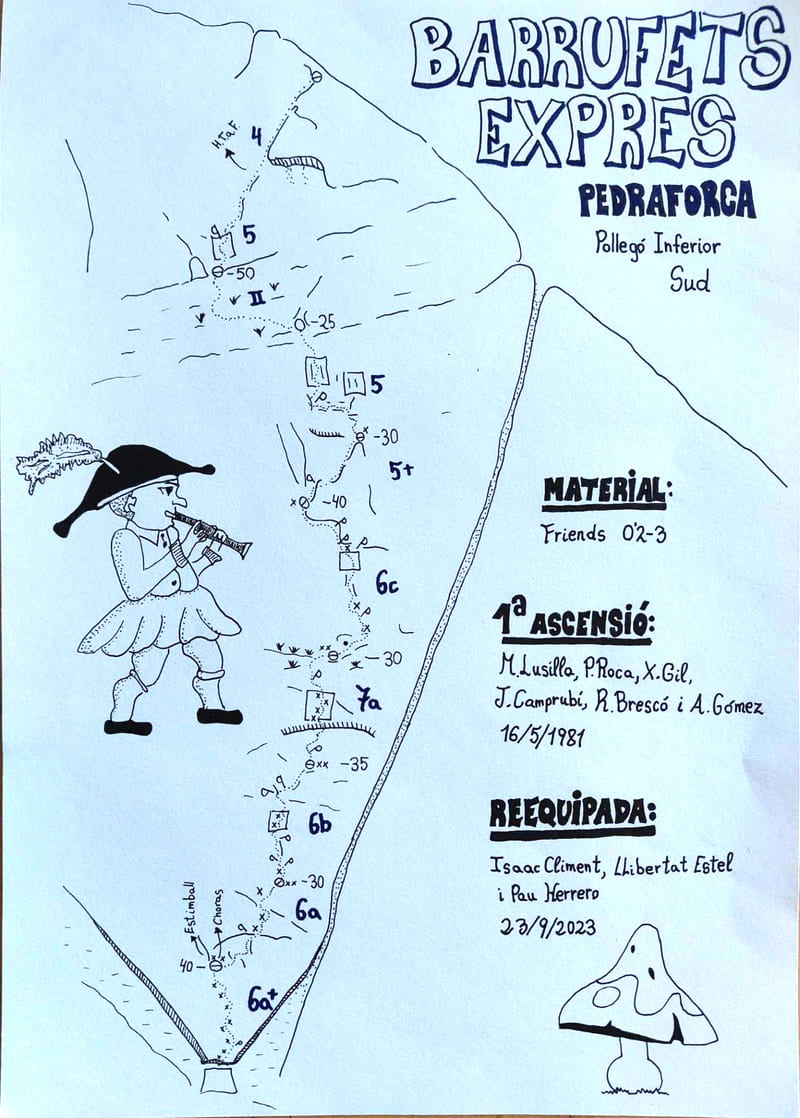 BARRUFETS
EXPRES
PEDRAFORCA
Pollegó Inferior
Sud
H.TaF
4
5
-50
II
-25
5
-30
5+
-40
6c
-30
7a
-35
6b
-30
6a
Estimball
Choras
40-
6a+
MATERIAL:
Friends 0'2-3
1ª ASCENSIÓ:
M.Lusilla, P.Roca, X.Gil,
J.Camprubí, R.Brescó i A.Gómez
16/5/1981
REEQUIPADA:
Isaac Climent, Llibertat Estel
i Pau Herrero
23/9/2023